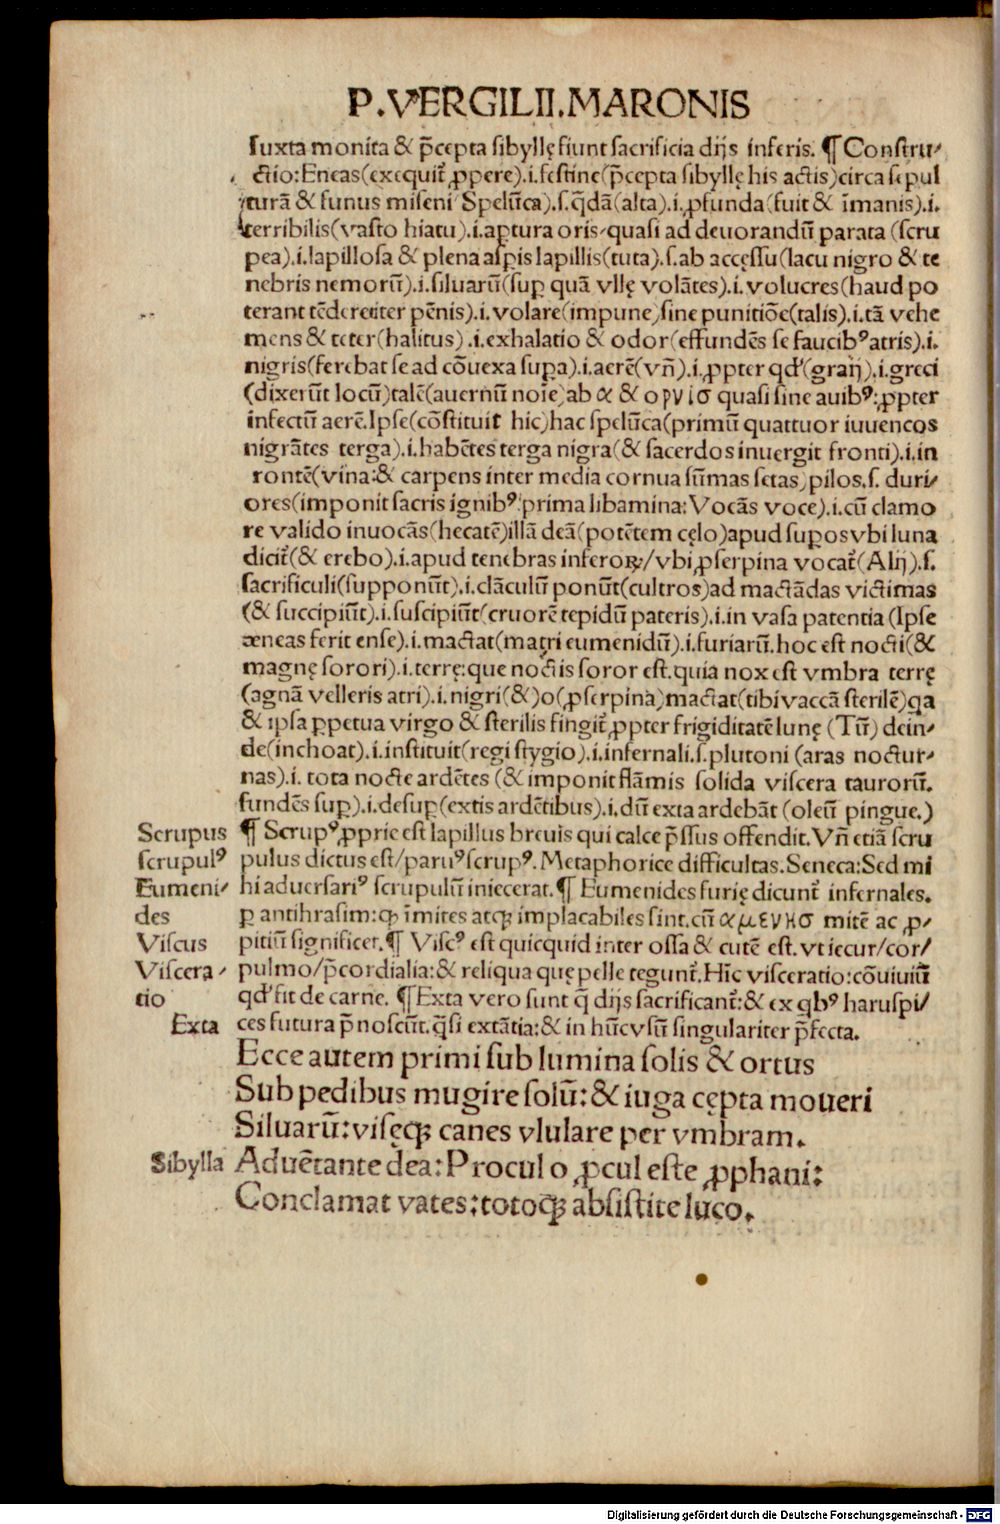 P.VERGILII.MARONIS
Iuxta monita & p̄cepta sibyllę fiunt sacrificia dijs inferis. ¶ Constru-
ctio: Eneas (exequit̃ ꝓpere).i.festine(p̄cepta sibyllę his actis)circa sepul
turã & funus miseni Spelũca).s.q̃dã(alta).i.ꝓfunda(fuit & ĩmanis).i.
terribilis(vasto hiatu).i.aptura oris quasi ad deuorandũ parata (scru
pea).i.lapillosa & plena aspis lapillis(tuta).s.ab accęssu(lacu nigro & te
nebris nemorũ).i.siluarũ(sup quã vllę volãtes).i.volucres(haud po
terant tẽdere iter pẽnis).i.volare(impune)sine punitiõe(talis).i.tã vehe
mens & teter(halitus).i.exhalatio & odor(effundẽs se faucibꝰ atris).i.
nigris(ferebat se ad cõuexa supa).i.aerẽ(vñ).i.ꝓpter qđ(graij).i.greci
(dixerũt locũ)talẽ(auernũ noĩe)ab α & ορνισ quasi sine auibꝰ:ꝓpter
infectũ aerẽ.Ipse(cõstituit hic)hac spelũca(primũ quattuor iuuencos
nigrãtes terga).i.habẽtes terga nigra(& sacerdos inuergit fronti).i.in
rontẽ(vina:& carpens inter media cornua sũmas setas)pilos.s. duri-
ores(imponit sacris ignibꝰ prima libamina: Vocãs voce).i.cũ clamo
re valido inuocãs(hecatẽ)illã deã(potẽtem cęlo)apud supos vbi luna
dicit̃(& erebo).i.apud tenebras inferoꝝ/vbi ꝓserpina vocat̃(Alij).s.
sacrificuli(supponũt).i.clãculũ ponũt(cultros)ad mactãdas victimas
(& succipiũt).i.suscipiũt(cruorẽ tepidũ pateris).i.in vasa patentia (Ipse
æneas ferit ense).i.mactat(matri eumenidũ).i.furiarũ.hoc est nocti(&
magnę sorori).i.terrę:que noctis soror est.quia nox est vmbra terrę
(agnã velleris atri).i.nigri(&)o(ꝓserpina)mactat(tibi vaccã sterilẽ)qa
& ipsa ꝑpetua virgo & sterilis fingit̃ ꝓpter frigiditatẽ lunę (Tũ) dein-
de(inchoat).i.instituit(regi stygio).i.infernali.s.plutoni (aras noctur-
nas).i. tota nocte ardẽtes (& imponit flãmis solida viscera taurorũ.
fundẽs sup).i.desup(extis ardẽtibus).i.dũ exta ardebãt (oleũ pingue.)
Scrupus ¶ Scrupꝰ ꝓprie est lapillus breuis qui calce p̄ssus offendit. Vñ etiã scru
scrupulꝰ pulus dictus est/paruꝰ scrupꝰ. Metaphorice difficultas. Seneca: Sed mi
Eumeni- hi aduersariꝰ scrupulũ iniecerat. ¶ Eumenides furię dicunt̃ infernales.
des ꝑ antihrasim: ꝙ ĩmites atqꝫ implacabiles sint.cũ αμενησ mitẽ ac ꝓ-
Viscus pitiũ significet. ¶ Viscꝰ est quicquid inter ossa & cutẽ est. vt iecur/cor/
Viscera- pulmo/p̄cordialia:& reliqua quę pelle tegunt̃. Hĩc visceratio:cõuiuiũ
tio qđ fit de carne. ¶ Exta vero sunt q̃ dijs sacrificant̃:& ex qbꝰ haruspi-
Exta ces futura p̄noscũt.q̃si extãtia:& in hũc vsũ singulariter p̄fecta.
Ecce autem primi sub lumina solis & ortus
Sub pedibus mugire solũ: & iuga cępta moueri
Siluarũ: visęqꝫ canes vlulare per vmbram.
Sibylla Aduẽtante dea: Procul o ꝓcul este ꝓphani:
Conclamat vates: totoqꝫ absistite luco.
Digitalisierung gefördert durch die Deutsche Forschungsgemeinschaft - DFG